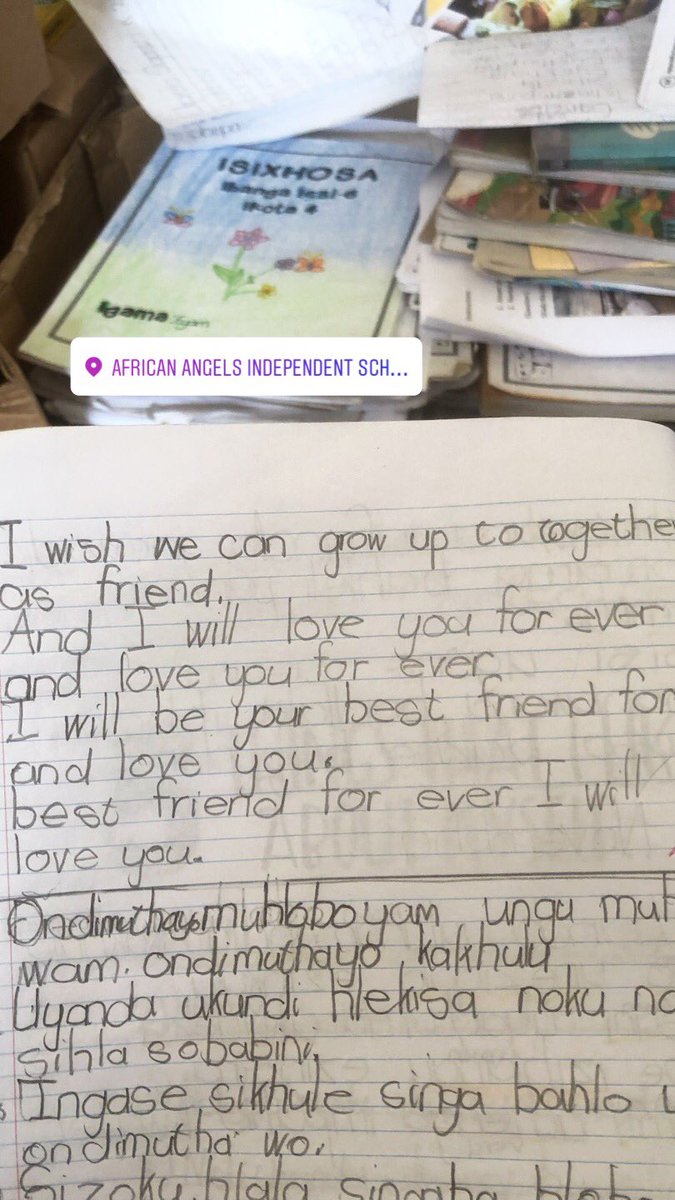 ISIXHOSA
Ibanga lesi-6
Ikota 4
Igama
AFRICAN ANGELS INDEPENDENT SCH...
I wish we can grow up to together
as friend.
And I will love you for ever
and love you for ever
I will be your best friend for
and love you.
best friend for ever I will
love you.
Ondimuthayo muhlobo yam, ungu muh
wam. ondimuthayo kakhulu
Uyanda ukundi hlekisa noku
sihla sobabini,
Ingase sikhule singa bahlo
ondimutha wo.
Sizoku hlala